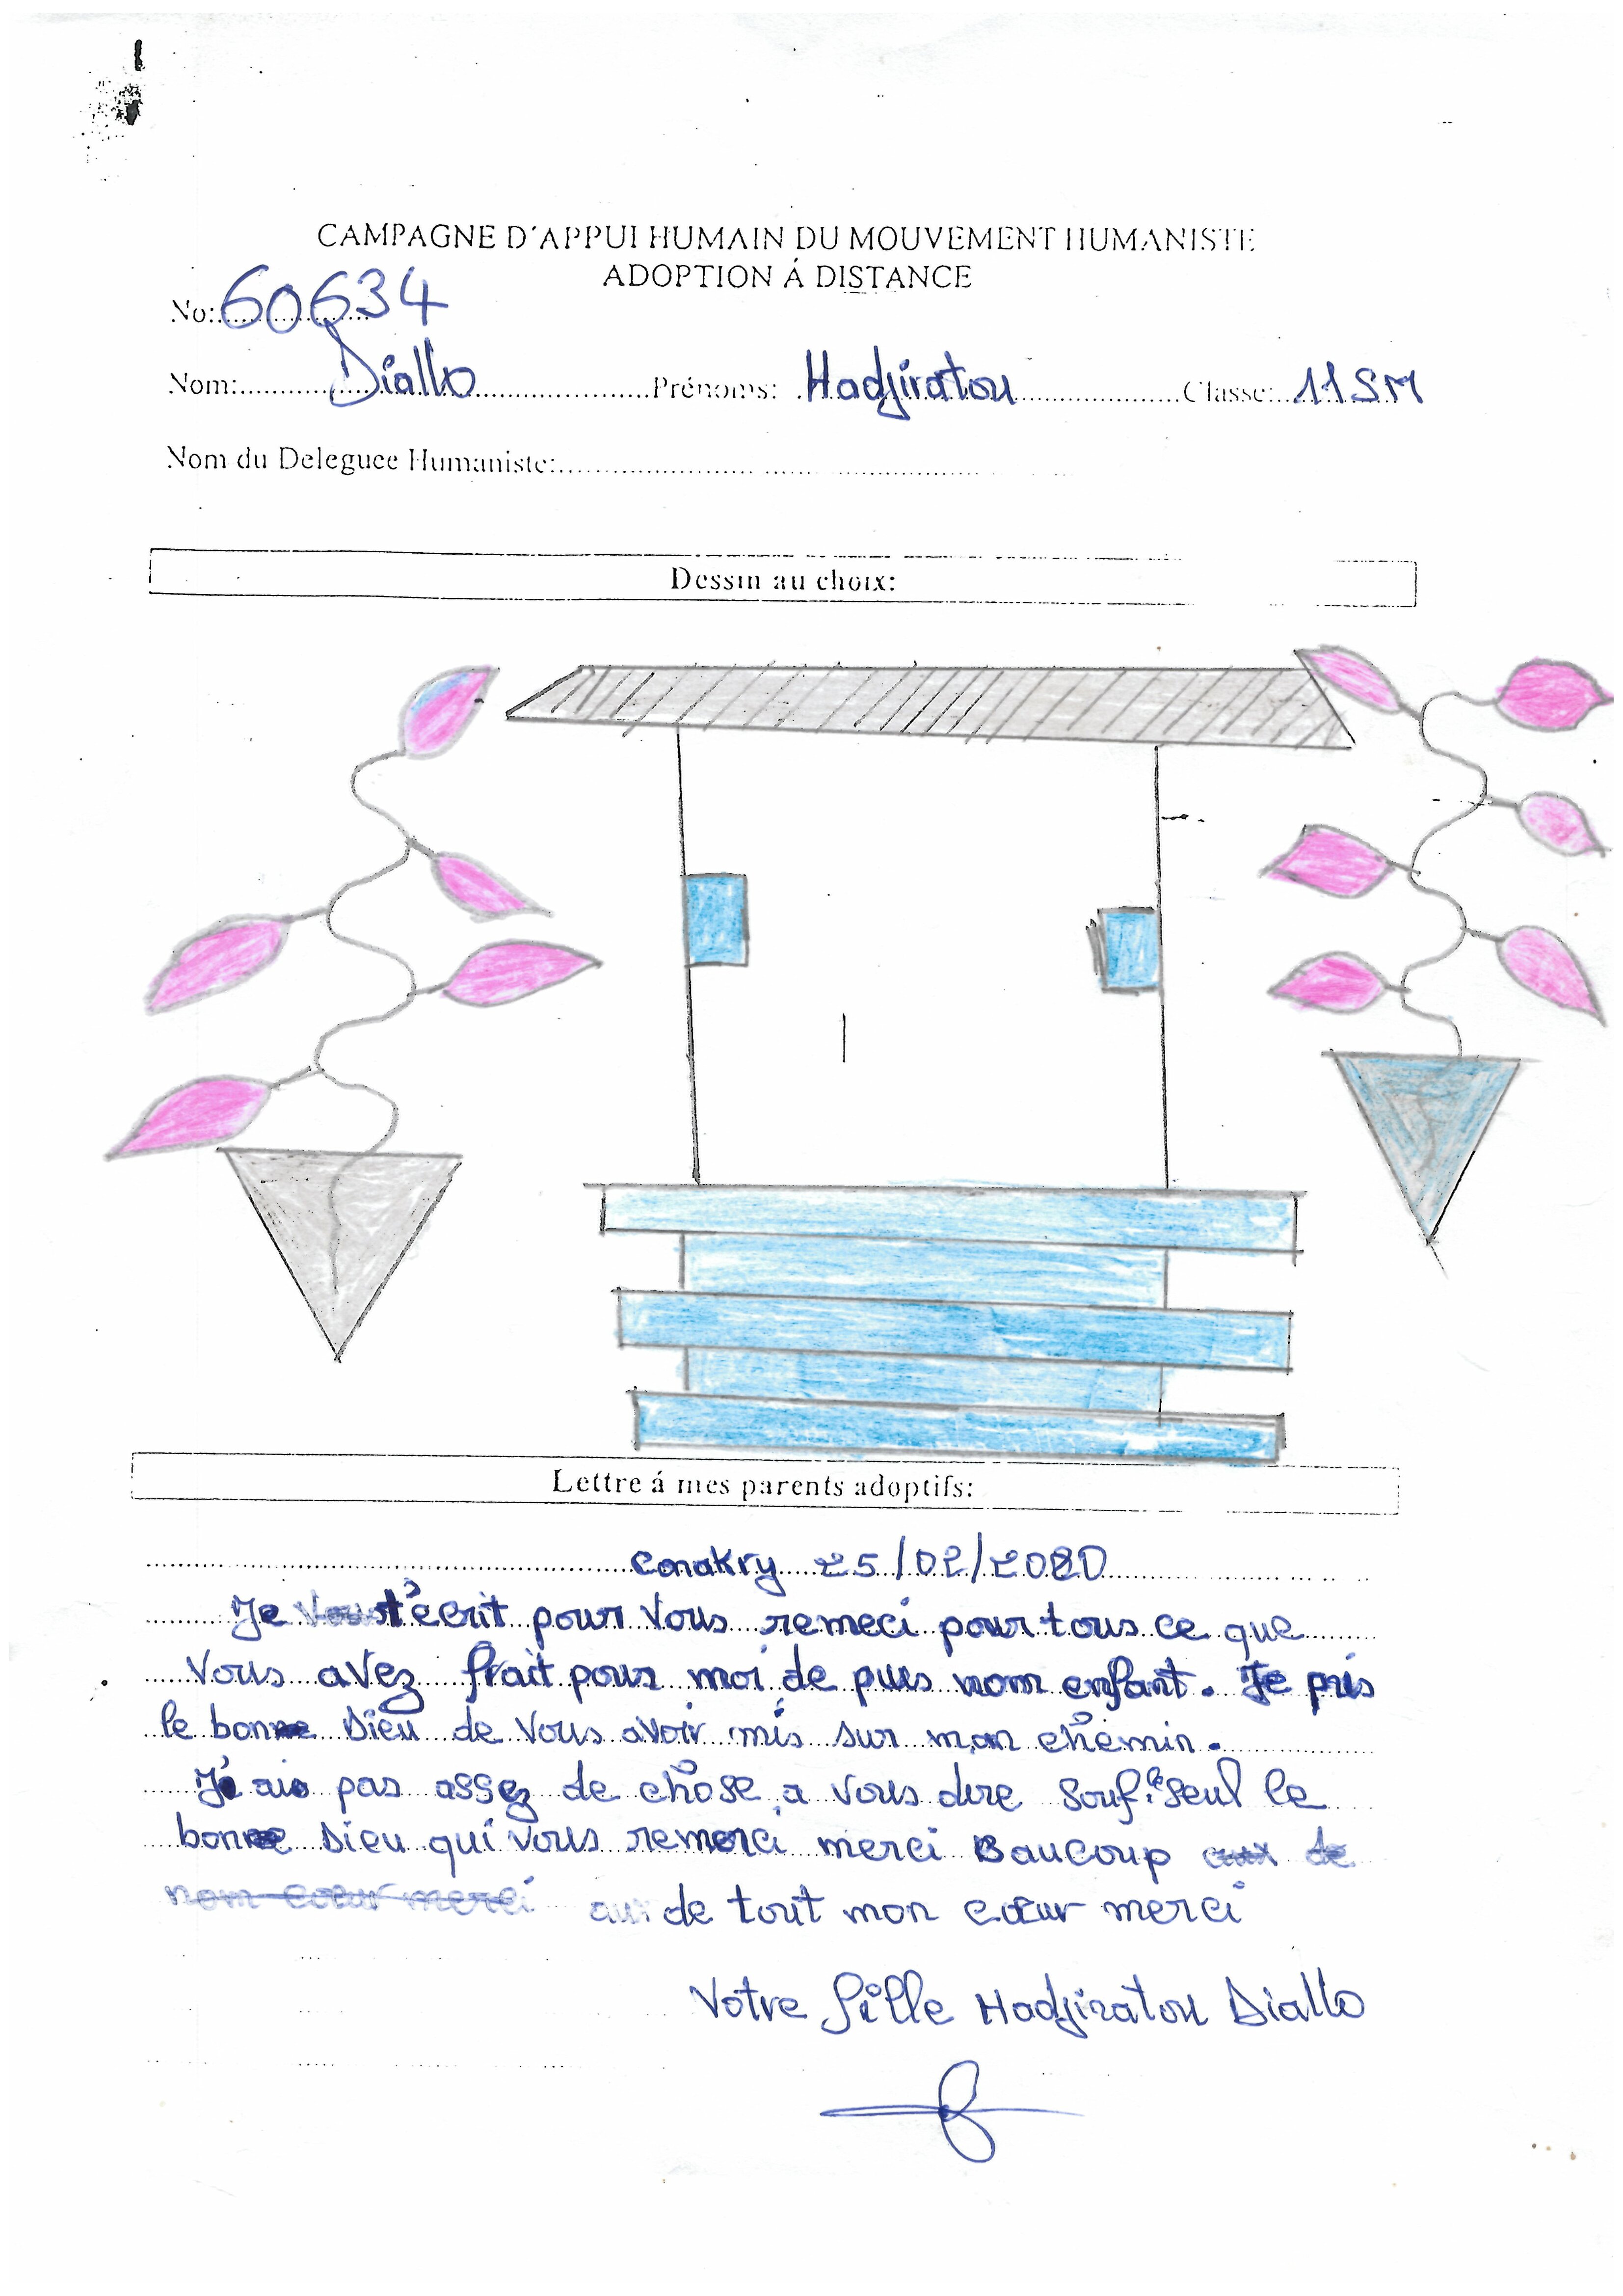 CAMPAGNE D'APPUI HUMAIN DU MOUVEMENT HUMANISTE
ADOPTION Á DISTANCE
No: 60634
Nom: Diallo Prénoms: Hadjiratou Classe: 11SM
Nom du Deleguee Humaniste:
Dessin au choix:
Lettre á mes parents adoptifs:
Conakry 25/02/2020
Je t'ecrit pour vous remeci pour tous ce que
vous avez frait pour moi de puis nom enfant. Je pris
le bon Dieu de vous avoir mis sur mon chemin.
J'ai pas assez de chose a vous dire souf le seul le
bon Dieu qui vous remerci merci Baucoup
de tout mon cœur merci
Votre fille Hadjiratou Diallo